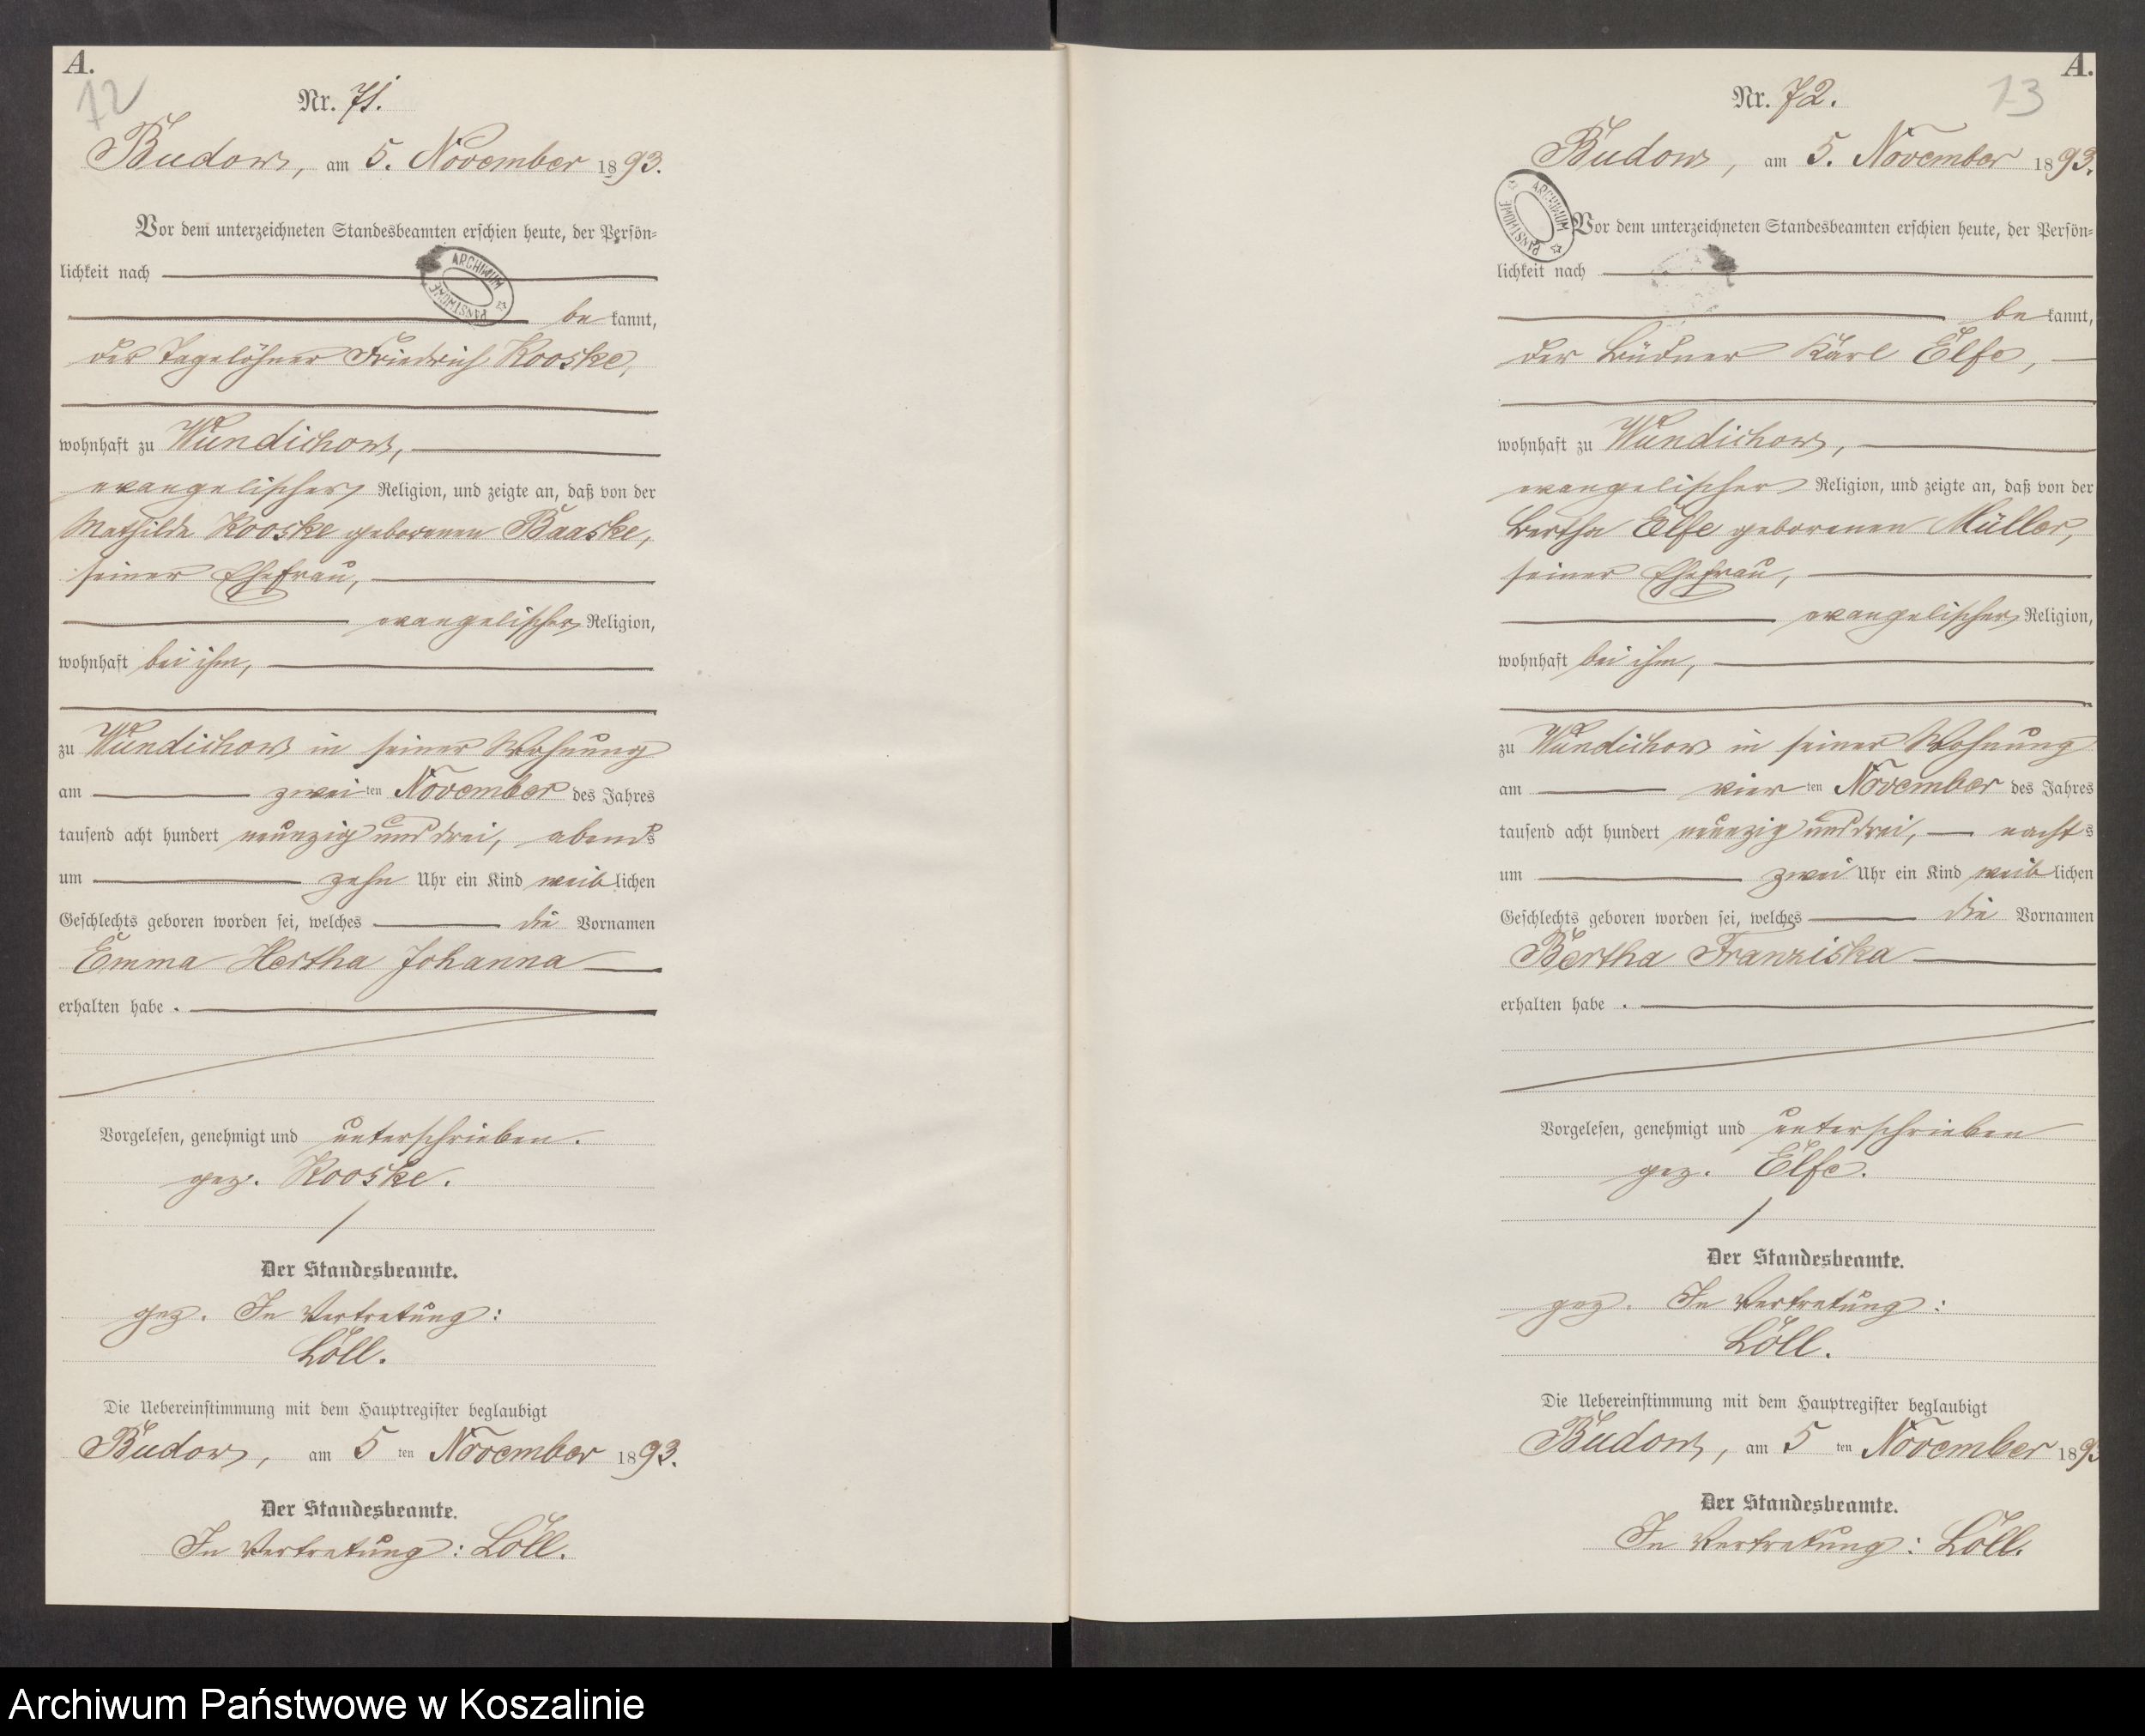 A.
72
Nr. 71.
Budow, am 5. November 1893.
Vor dem unterzeichneten Standesbeamten erschien heute, der Persön-
lichkeit nach
be kannt,
der Tagelöhner Friedrich Kooske,
wohnhaft zu Wundichow,
evangelischer Religion, und zeigte an, daß von der
Mathilde Kooske geborenen Baaske,
seiner Ehefrau,
evangelischer Religion,
wohnhaft bei ihm,
zu Wundichow in seiner Wohnung
am zwei ten November des Jahres
tausend acht hundert neunzig und drei, abends
um zehn Uhr ein Kind weib lichen
Geschlechts geboren worden sei, welches die Vornamen
Emma Hertha Johanna
erhalten habe.
Vorgelesen, genehmigt und unterschrieben.
gez. Kooske.
Der Standesbeamte.
gez. In Vertretung:
Löll.
Die Uebereinstimmung mit dem Hauptregister beglaubigt
Budow, am 5 ten November 1893.
Der Standesbeamte.
In Vertretung: Löll.
ARCHIWUM PAŃSTWOWE
A.
73
Nr. 72.
Budow, am 5. November 1893.
ARCHIWUM PAŃSTWOWE
Vor dem unterzeichneten Standesbeamten erschien heute, der Persön-
lichkeit nach
be kannt,
der Büdner Karl Elfe,
wohnhaft zu Wundichow,
evangelischer Religion, und zeigte an, daß von der
Bertha Elfe geborenen Müller,
seiner Ehefrau,
evangelischer Religion,
wohnhaft bei ihm,
zu Wundichow in seiner Wohnung
am vier ten November des Jahres
tausend acht hundert neunzig und drei, nachts
um zwei Uhr ein Kind weib lichen
Geschlechts geboren worden sei, welches die Vornamen
Bertha Franziska
erhalten habe.
Vorgelesen, genehmigt und unterschrieben
gez. Elfe.
Der Standesbeamte.
gez. In Vertretung:
Löll.
Die Uebereinstimmung mit dem Hauptregister beglaubigt
Budow, am 5 ten November 1893
Der Standesbeamte.
In Vertretung: Löll.
Archiwum Państwowe w Koszalinie